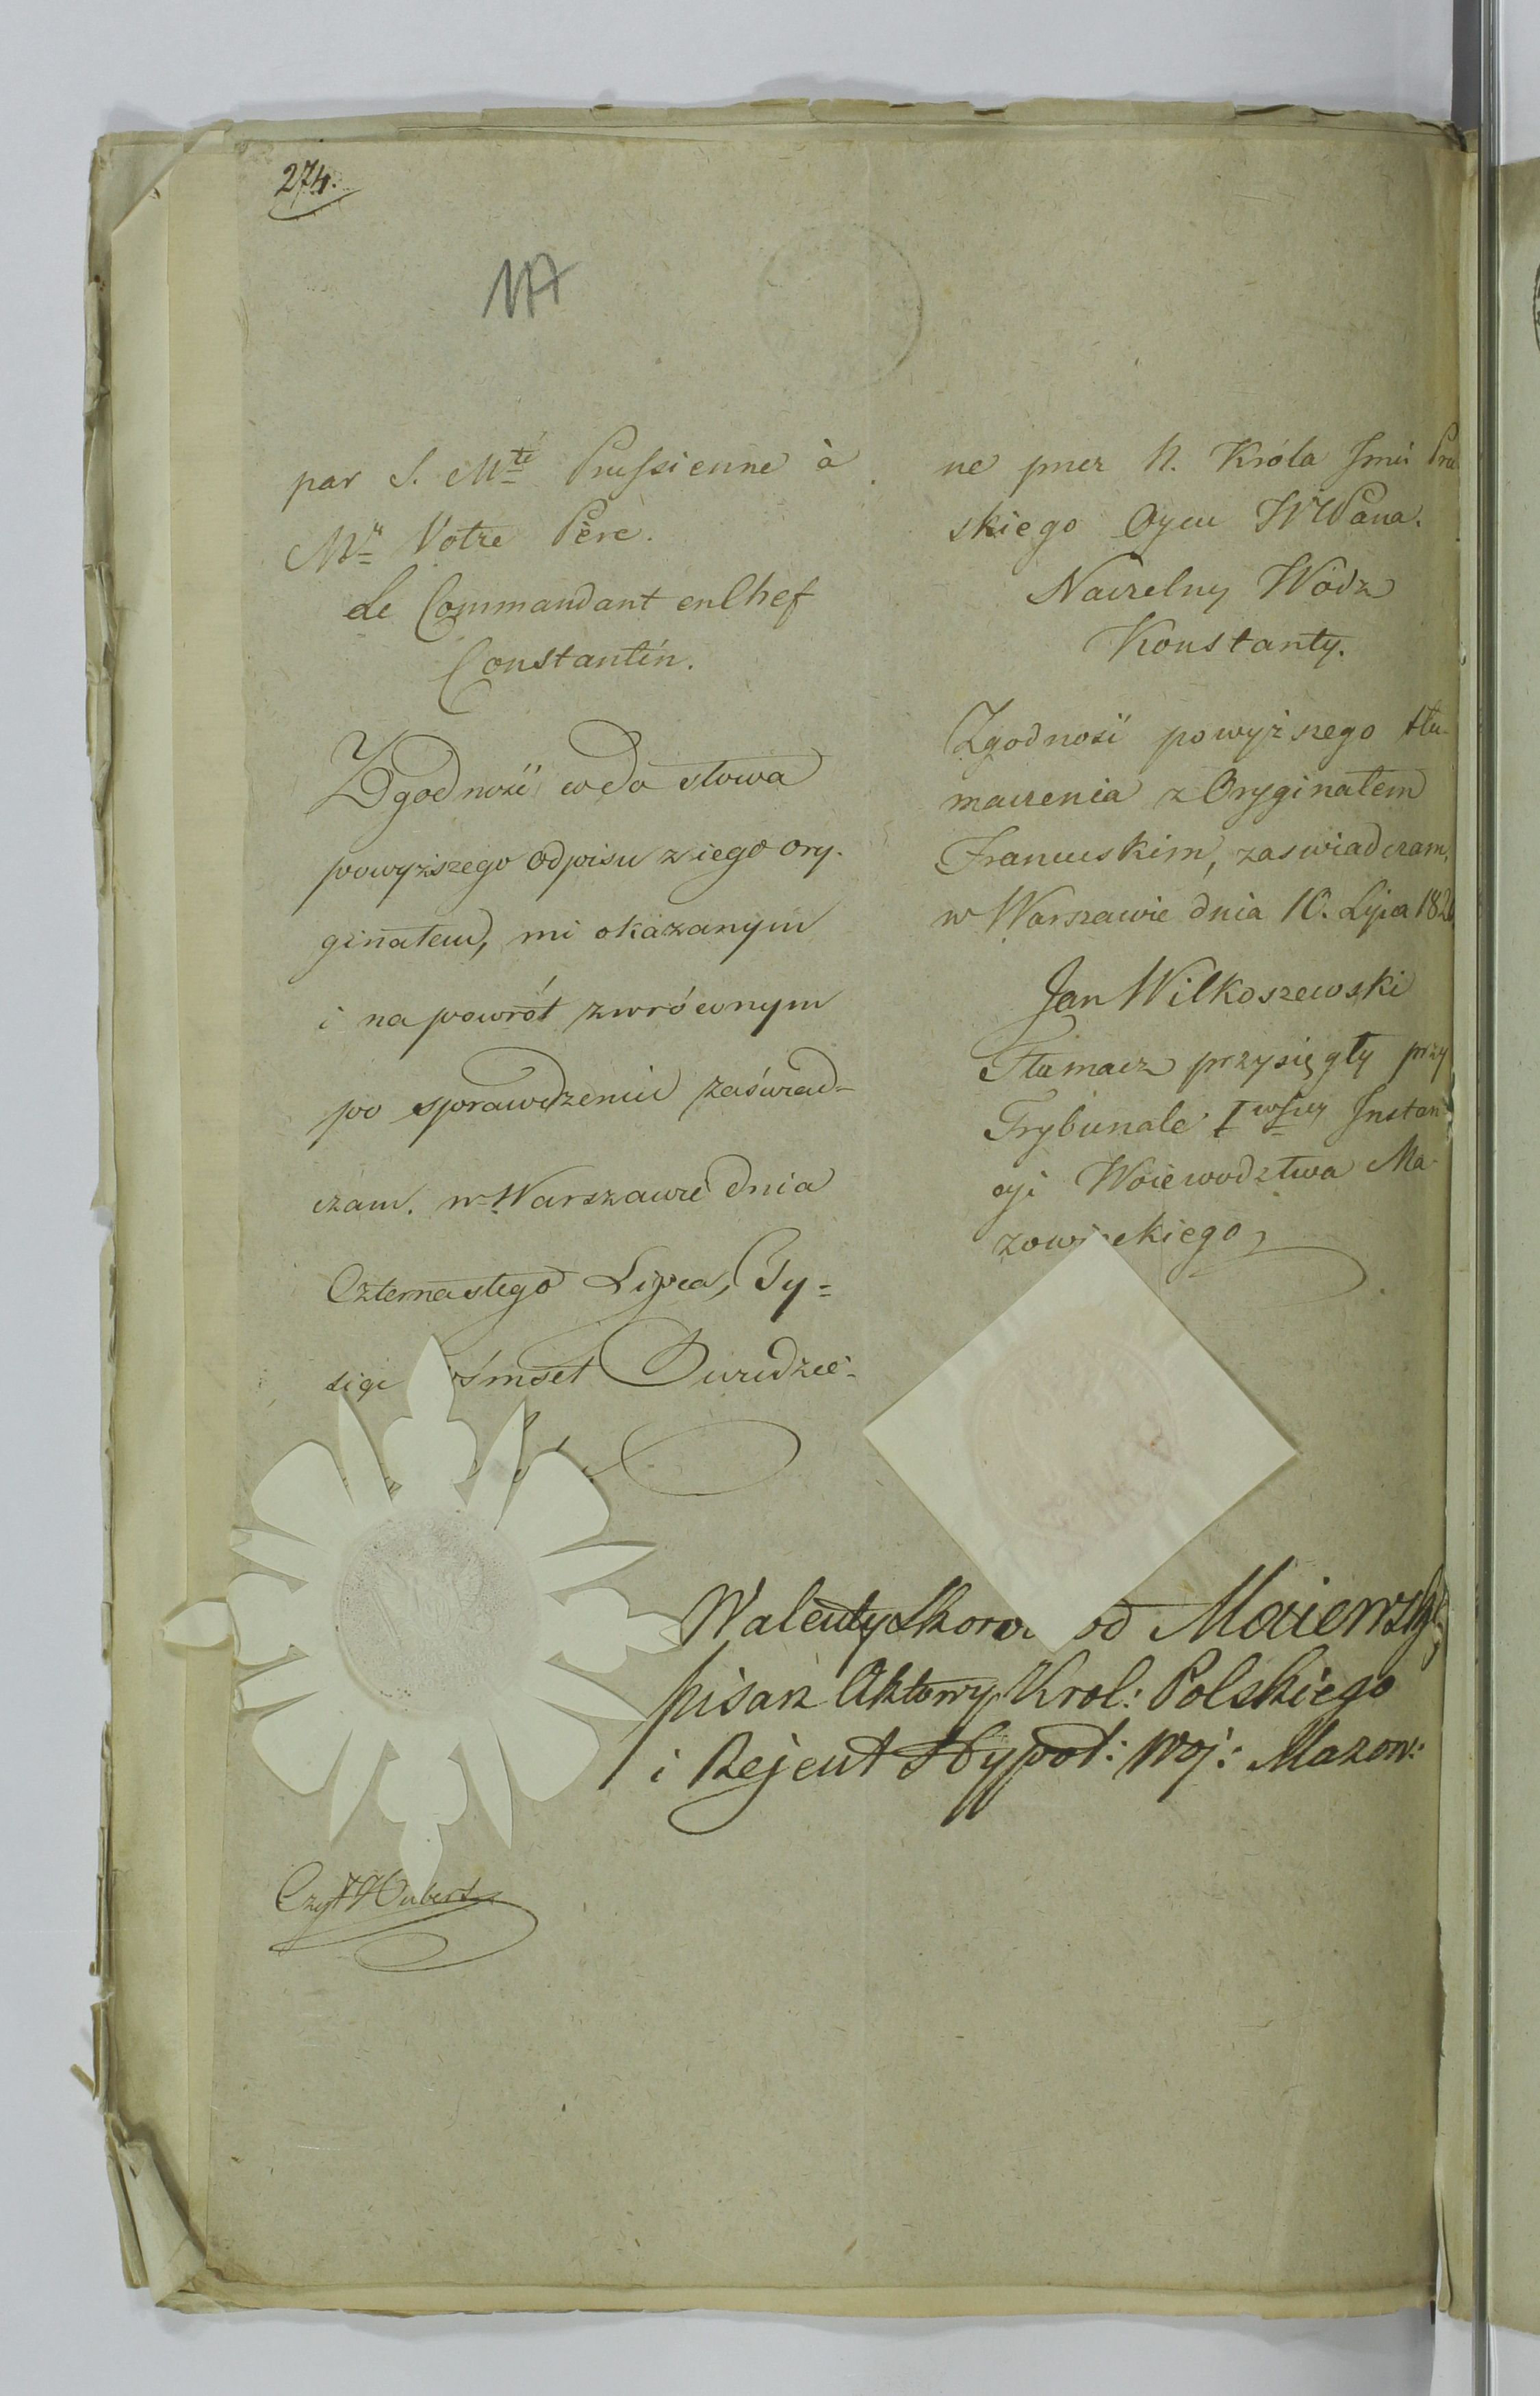 274.
117
par S. Mté Prussienne à
Mr Votre Père.
Le Commandant en Chef
Constantin.
Zgodność co do słowa
powyższego odpisu z iego ory-
ginałem, mi okazanym
i napowrót zwróconym
po sprawdzeniu zaświad-
czam. w Warszawie dnia
Czternastego Lipca, Ty-
siąc ośmset Dwudzie-
ne przez N. Króla Jmci Pru
skiego Oycu WWPana.
Naczelny Wódz
Konstanty.
Zgodność powyższego tłu-
maczenia z Oryginałem
Francuskim, zaswiadczam,
w Warszawie dnia 10. Lipca 182
Jan Wilkoszewski
Tłumacz przysięgły przy
Trybunale Iwszey Instan-
cyi Woiewodztwa Ma-
zowieckiego
Walenty Skoro od Maiewski
pisarz Aktowy Krol: Polskiego
i Rejent Hypot: Woj: Mazow:
Czyt Hubert